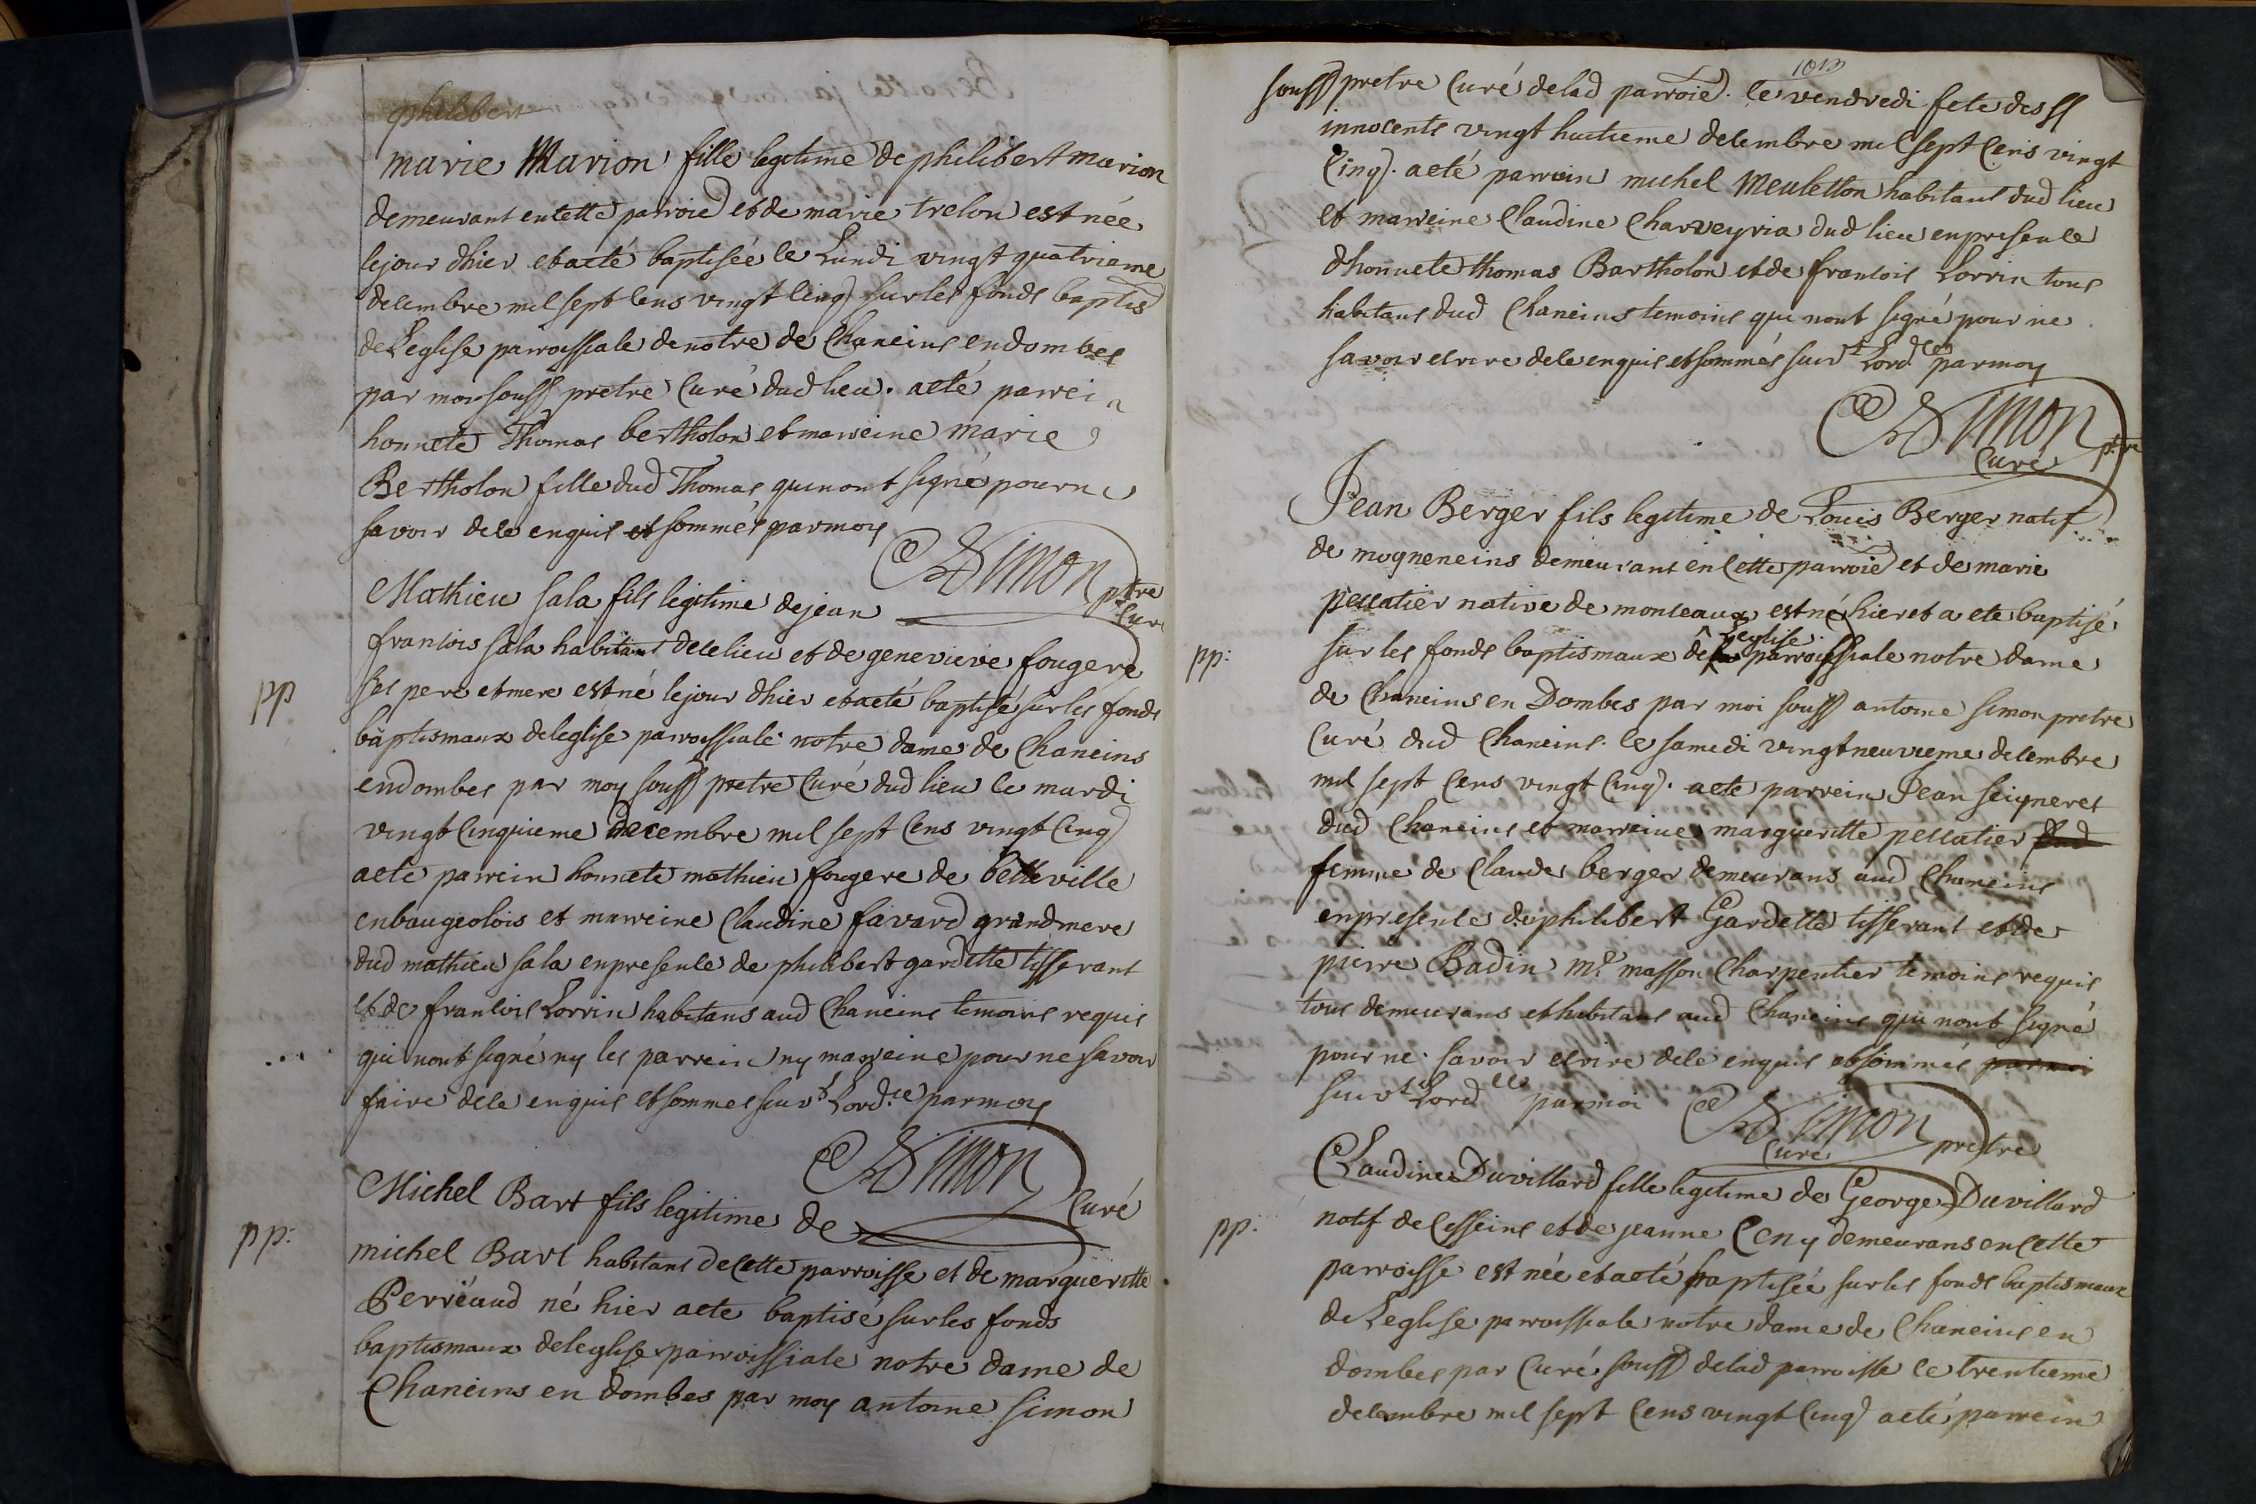 philibert
marie Marion fille legitime de philibert marion
demeurant en cette parroie et de marie trelon est née
le jour d'hier et a eté baptisée le Lundi vingt quatrieme
decembre mil sept cens vingt cinq sur les fonds baptis
de L'eglise parroissiale de notre de Chaneins en dombes
par moy souss pretre Curé dud lieu. a eté parrein
honnete Thomas bertholon et marreine marie
Bertholon fille dud Thomas qui n'ont signé pour ne
savoir de ce enquis et sommés par moy
A Simon ptre
Curé
Mathieu sala fils legitime de jean
francois sala habitant de ce lieu et de genevieve fougere
pp
ses pere et mere est né le jour d'hier et a eté baptisé sur les fonds
baptismaux de l'eglise parroissiale notre dame de Chaneins
en dombes par moy souss pretre Curé dud lieu le mardi
vingt cinquieme decembre mil sept cens vingt cinq
a eté parrein honnete mathieu fougere de belleville
en baugeolois et marreine Claudine favard grand mere
dud mathieu sala en presence de philibert gardette tisserant
et de francois Lorrin habitans aud Chaneins temoins requis
qui n'ont signé ny les parrein ny marreine pour ne savoir
faire de ce enquis et sommes suivt Lord.ce par moy
A Simon
Curé
Michel Bart fils legitime de
pp:
michel Bart habitant de cette parroisse et de margueritte
Perréaud né hier a eté baptisé sur les fonds
baptismaux de l'eglise parroissiale notre dame de
Chaneins en dombes par moy antoine simon
1013
souss pretre Curé de lad parroie. le vendredi fete des SS
innocents vingt huitieme decembre mil sept cens vingt
Cinq. a eté parrein michel Meuletton habitant dud lieu
et marreine Claudine Charveyria dud lieu en presence
d'honnete thomas Bartholon et de francois Lorrin tous
habitans dud Chaneins temoins qui n'ont signé pour ne
savoir ecrire de ce enquis et sommés suivt Lord.ce par moy
A Simon ptre
Curé
Jean Berger fils legitime de Louis Berger natif
de mogneneins demeurant en cette parroie et de marie
pellatier native de monceaux est né hier et a eté baptisé
pp:
sur les fonds baptismaux de l'eglise parroissiale notre dame
de Chaneins en Dombes par moi souss antoine simon pretre
Curé dud Chaneins. le samedi vingt neuvieme decembre
mil sept cens vingt cinq. a eté parrein Jean seigneret
dud Chaneins et marreine margueritte pellatier dud
femme de Claude berger demeurans aud Chaneins
en presence de philibert Gardette tisserant et de
pierre Badin m.e masson Charpentier temoins requis
tous demeurans et habitans aud Chaneins qui n'ont signé
pour ne savoir ecrire de ce enquis et sommés par moi
suivt Lord.ce par moi
A Simon pretre
Curé
Claudine Duvillard fille legitime de George Duvillard
pp.
natif de Cesseins et de jeanne Ceny demeurans en cette
parroisse est née et a eté baptisée sur les fonds baptismaux
de L'eglise parroissiale notre dame de Chaneins en
dombes par Curé souss de lad parroisse le trentieme
decembre mil sept cens vingt cinq a eté parrein